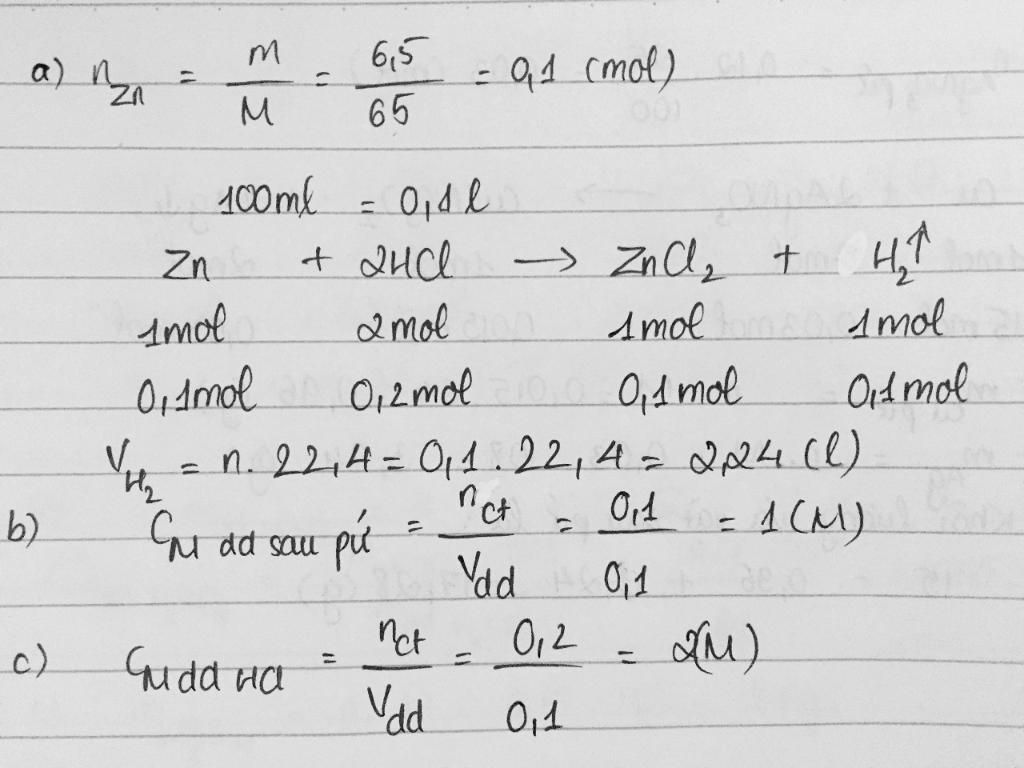 a) n_Zn = m/M = 6,5/65 = 0,1 (mol)
100ml = 0,1l
Zn + 2HCl → ZnCl₂ + H₂↑
1mol 2mol 1mol 1mol
0,1mol 0,2mol 0,1mol 0,1mol
V_H₂ = n.22,4 = 0,1.22,4 = 2,24 (l)
b) C_M dd sau pứ = n_ct/V_dd = 0,1/0,1 = 1 (M)
c) C_M dd HCl = n_ct/V_dd = 0,2/0,1 = 2(M)